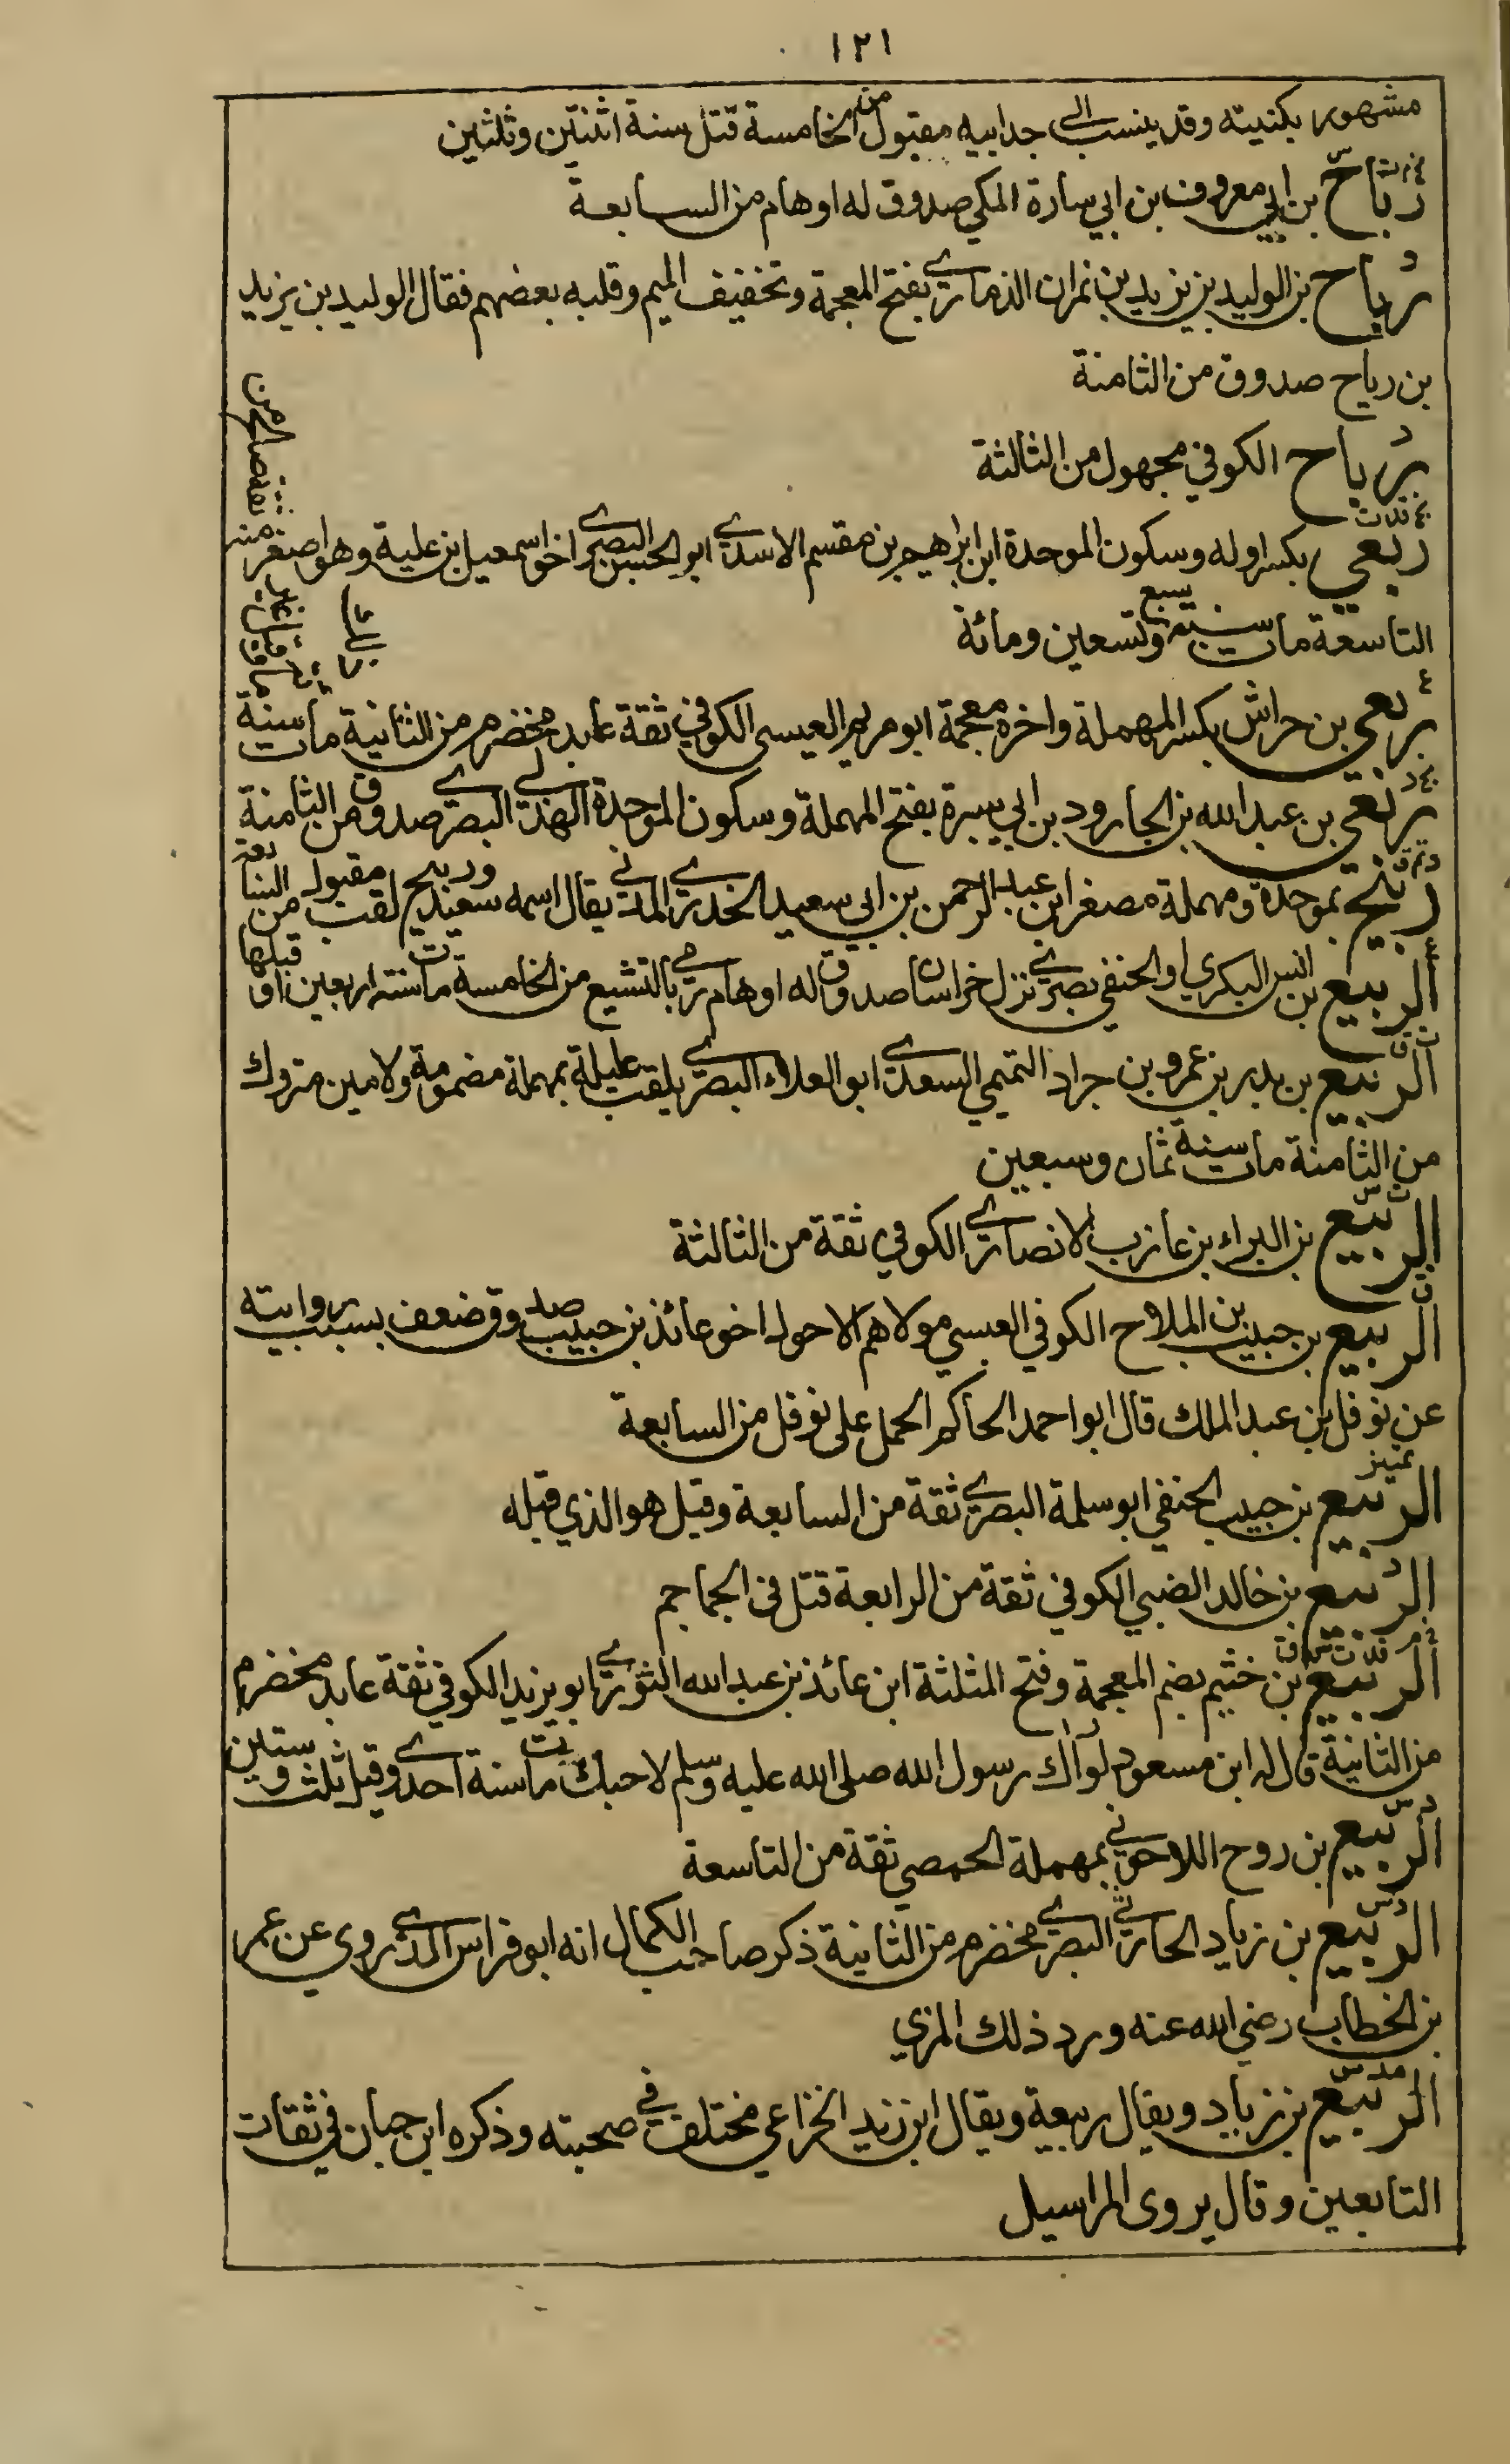 ١٢١
مشهور بكنيته وقد ينسب الى جد ابيه مقبول من الخامسة قتل سنة اثنتين وثلثين
رباح بن ابي معروف بن ابي سارة المكي صدوق له اوهام من السابعة
رباح بن الوليد بن يزيد بن نمران الذماري بفتح المعجمة وتخفيف الميم وقلبه بعضهم فقال الوليد بن يزيد
بن رباح صدوق من الثامنة
د
رباح الكوفي مجهول من الثالثة
بخ قد ت
ربعي بكسر اوله وسكون الموحدة ابن ابراهيم بن مقسم الاسدي ابو الحسن البصري اخو اسمعيل بن علية وهو اصغر منه
ثقة صالح من
التاسعة مات سنة سبع وتسعين ومائة
ع
ربعي بن حراش بكسر المهملة واخره معجمة ابو مريم العبسي الكوفي ثقة عابد مخضرم من الثانية مات سنة
مائة وقيل غير ذلك
بخ د
ربعي بن عبد الله بن الجارود بن ابي سبرة بفتح المهملة وسكون الموحدة الهذلي البصري صدوق من الثامنة
د تم ق
ربيح بموحدة ومهملة مصغر ابن عبد الرحمن بن ابي سعيد الخدري المدني يقال اسمه سعيد وربيح لقب مقبول من السابعة
ع
الربيع بن انس البكري او الحنفي بصري نزل خراسان صدوق له اوهام رمي بالتشيع من الخامسة مات سنة اربعين او قبلها
ت ق
الربيع بن بدر بن عمرو بن جراد التميمي السعدي ابو العلاء البصري يلقب عليلة بمهملة مضمومة ولامين متروك
من الثامنة مات سنة ثمان وسبعين
ت س
الربيع بن البراء بن عازب الانصاري الكوفي ثقة من الثالثة
ق
الربيع بن حبيب بن الملاح الكوفي العبسي مولاهم الاحول اخو عائذ بن حبيب صدوق ضعف بسبب روايته
عن نوفل بن عبد الملك قال ابو احمد الحاكم الحمل على نوفل من السابعة
تمييز
الربيع بن حبيب الحنفي ابو سلمة البصري ثقة من السابعة وقيل هو الذي قبله
د
الربيع بن خالد الضبي الكوفي ثقة من الرابعة قتل في الجماجم
خ م قد ت س ق
الربيع بن خثيم بضم المعجمة وفتح المثلثة ابن عائذ بن عبد الله الثوري ابو يزيد الكوفي ثقة عابد مخضرم
من الثانية قال له ابن مسعود لو رآك رسول الله صلى الله عليه وسلم لاحبك مات سنة احدى وقيل ثلث وستين
د س
الربيع بن روح اللاحوني بمهملة الحمصي ثقة من التاسعة
د س
الربيع بن زياد الحارثي البصري مخضرم من الثانية ذكر صاحب الكمال انه ابو فراس الذي روى عن عمر
بن الخطاب رضي الله عنه ورد ذلك المزي
مد س
الربيع بن زياد ويقال ربيعة ويقال ابن زيد الخزاعي مختلف في صحبته وذكره ابن حبان في ثقات
التابعين وقال يروى المراسيل